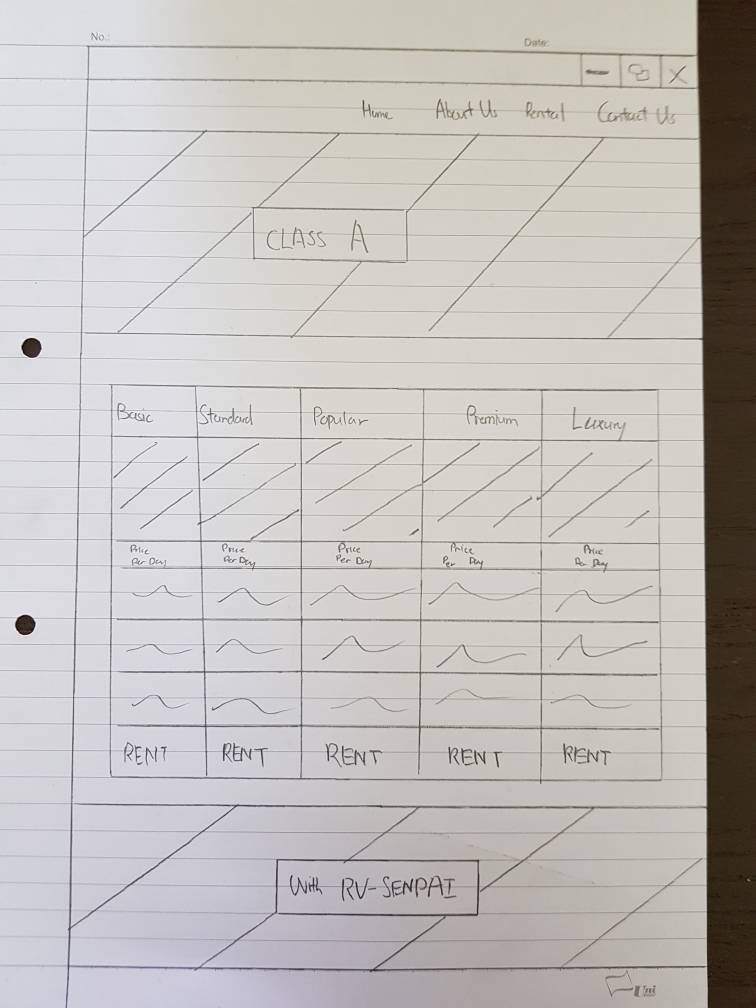 No.:
Date:
Home About Us Rental Contact Us
CLASS A
Basic Standard Popular Premium Luxury
Price Price Price Price Price
Per Day Per Day Per Day Per Day Per Day
RENT RENT RENT RENT RENT
With RV-SENPAI
Uni